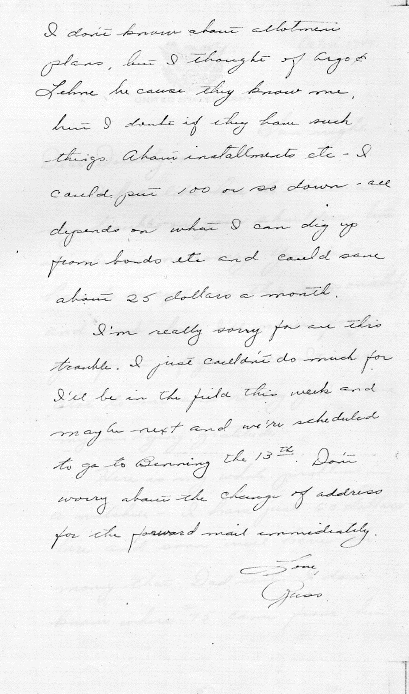 I don't know about allotment
plans, but I thought of Argo &
Lehne because they know me,
but I doubt if they have such
things. About installments etc - I
could put 100 or so down - all
depends on what I can dig up
from bonds etc and could save
about 25 dollars a month.
I'm really sorry for all this
trouble. I just couldn't do much for
I'll be in the field this week and
maybe next and we're scheduled
to go to Benning the 13th. Don't
worry about the change of address
for the forward mail immidiatly.
Love,
Russ.